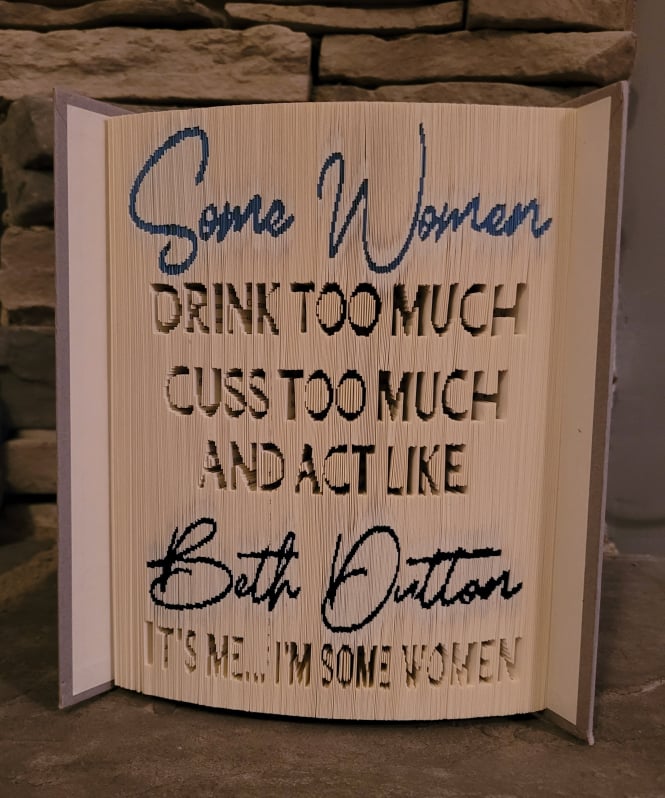 Some Women
DRINK TOO MUCH
CUSS TOO MUCH
AND ACT LIKE
Beth Dutton
IT'S ME... I'M SOME WOMEN